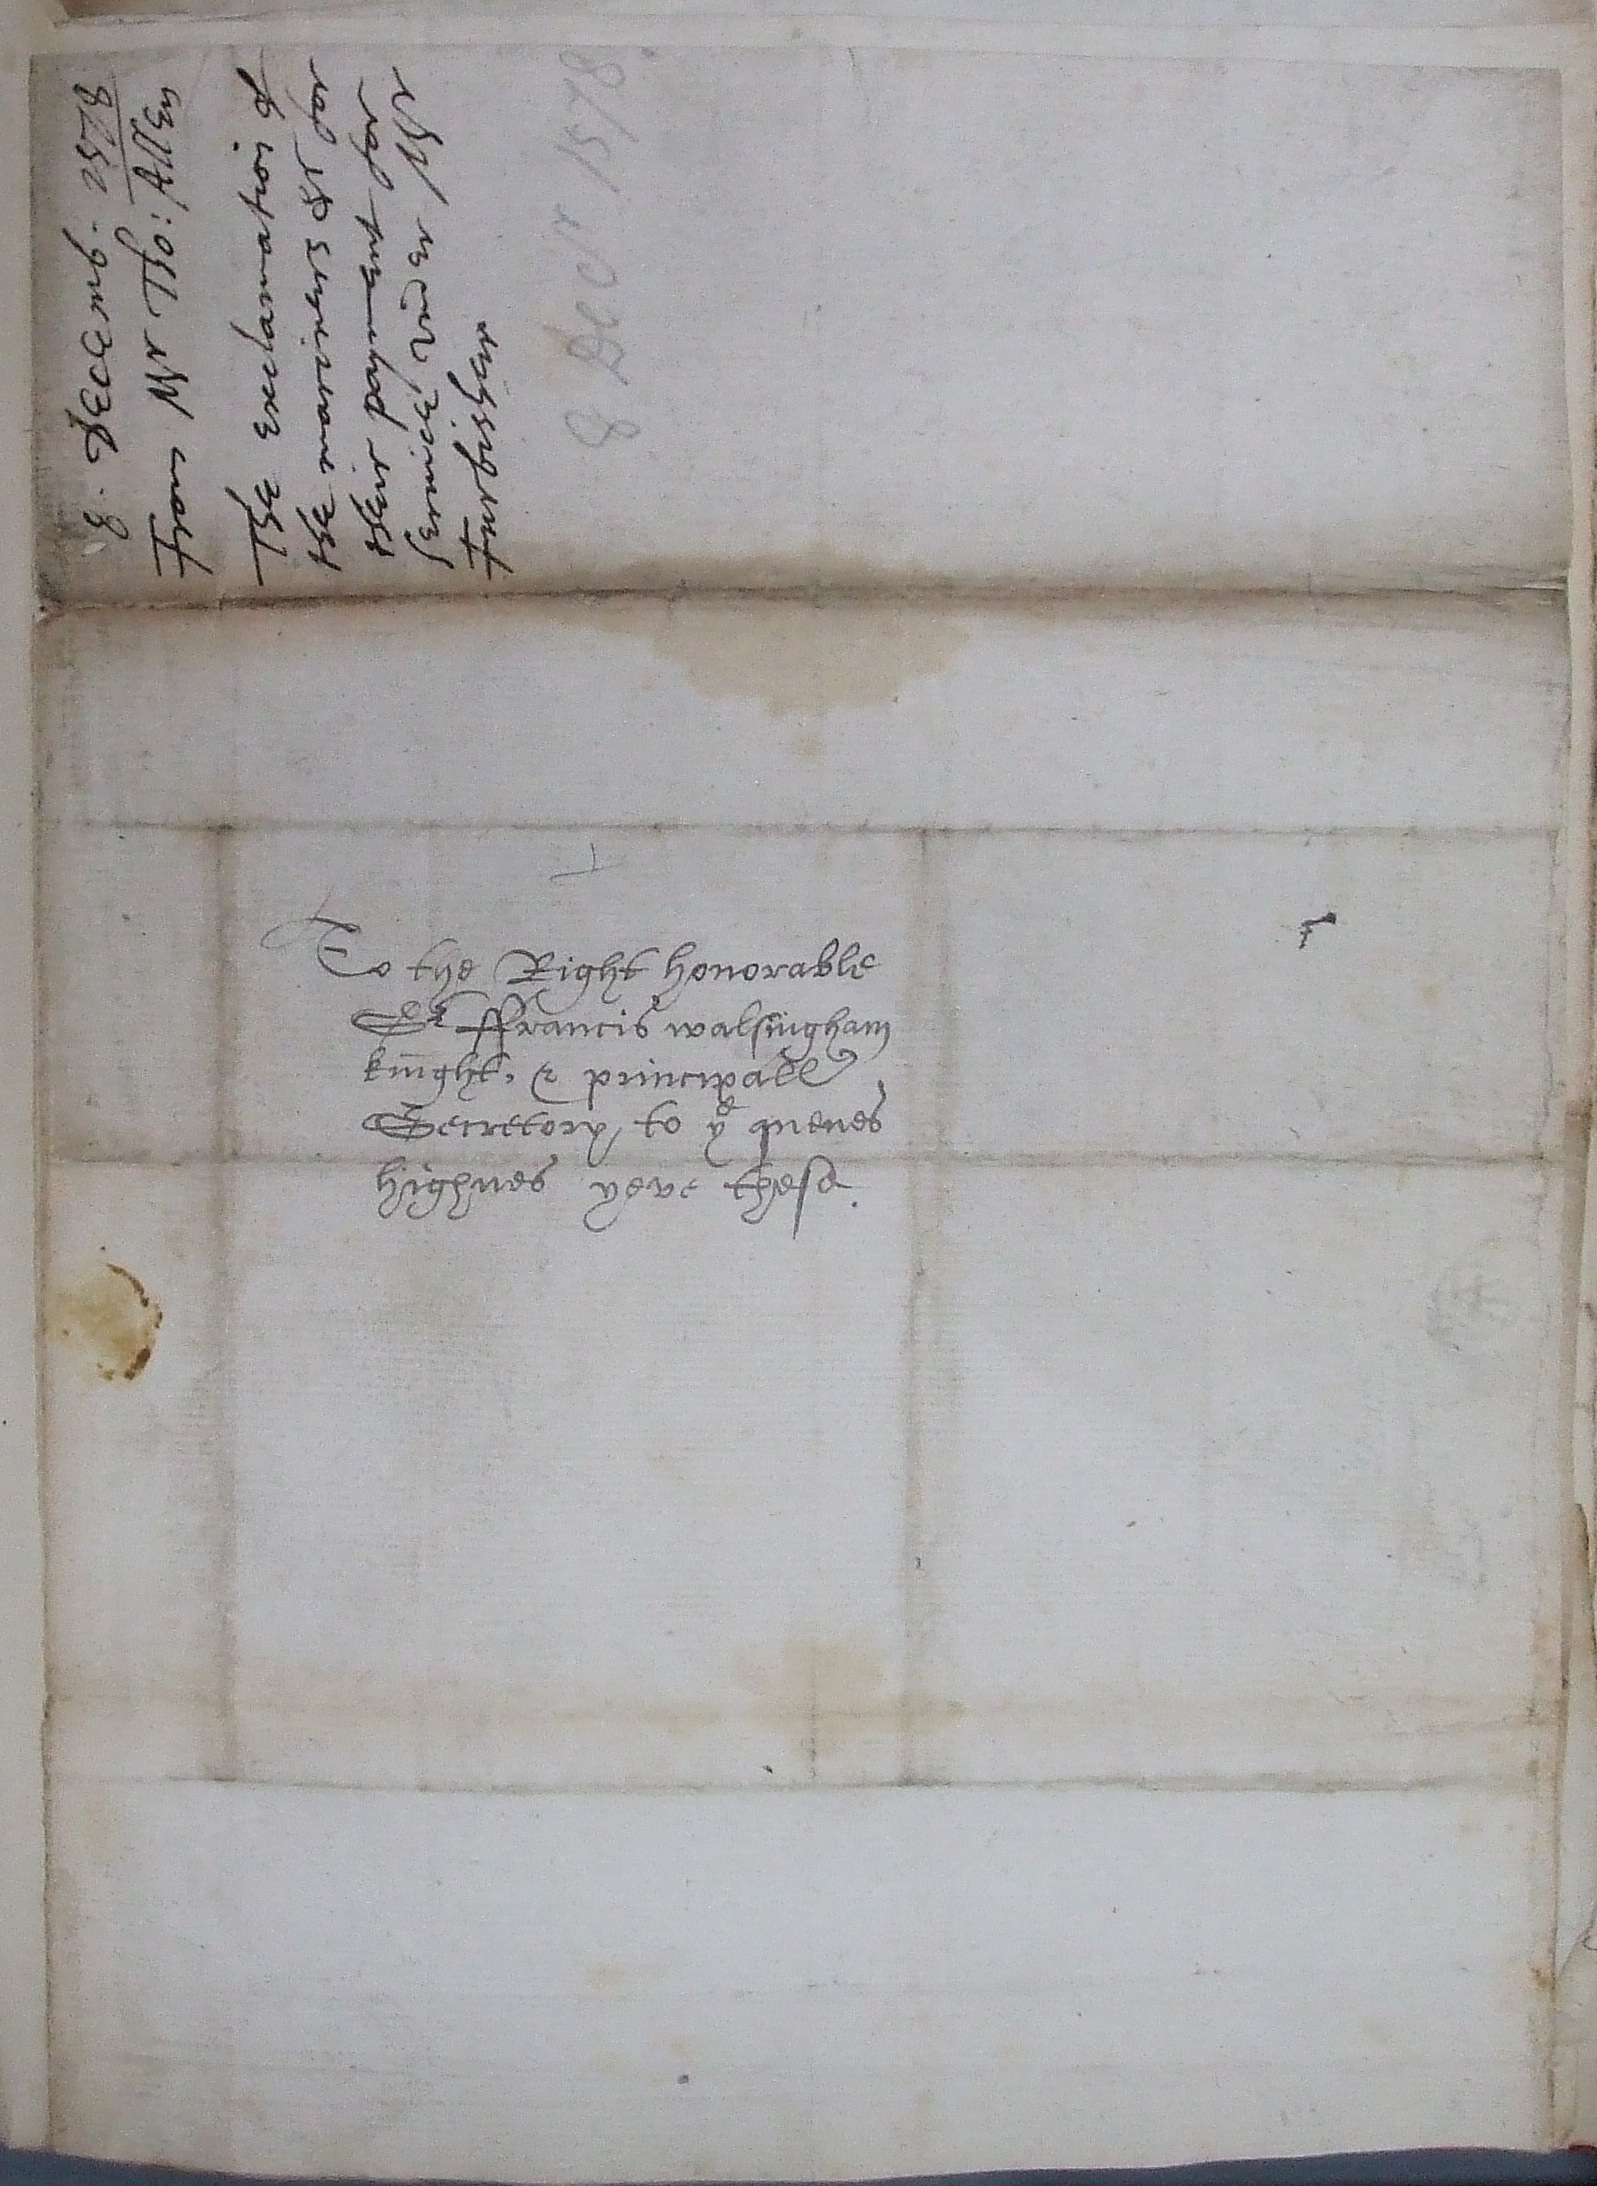 8. Decemb. 1578
From Mr Tho: Allen
The exclamation of
the mariners &c for
their payment for
seruice vnder Mr
Furbisher
8 Decr 1578
To the Right honorable
Sr ffrancis walsingham
knight, & principall
Secretory to ye quenes
highnes yeve these.